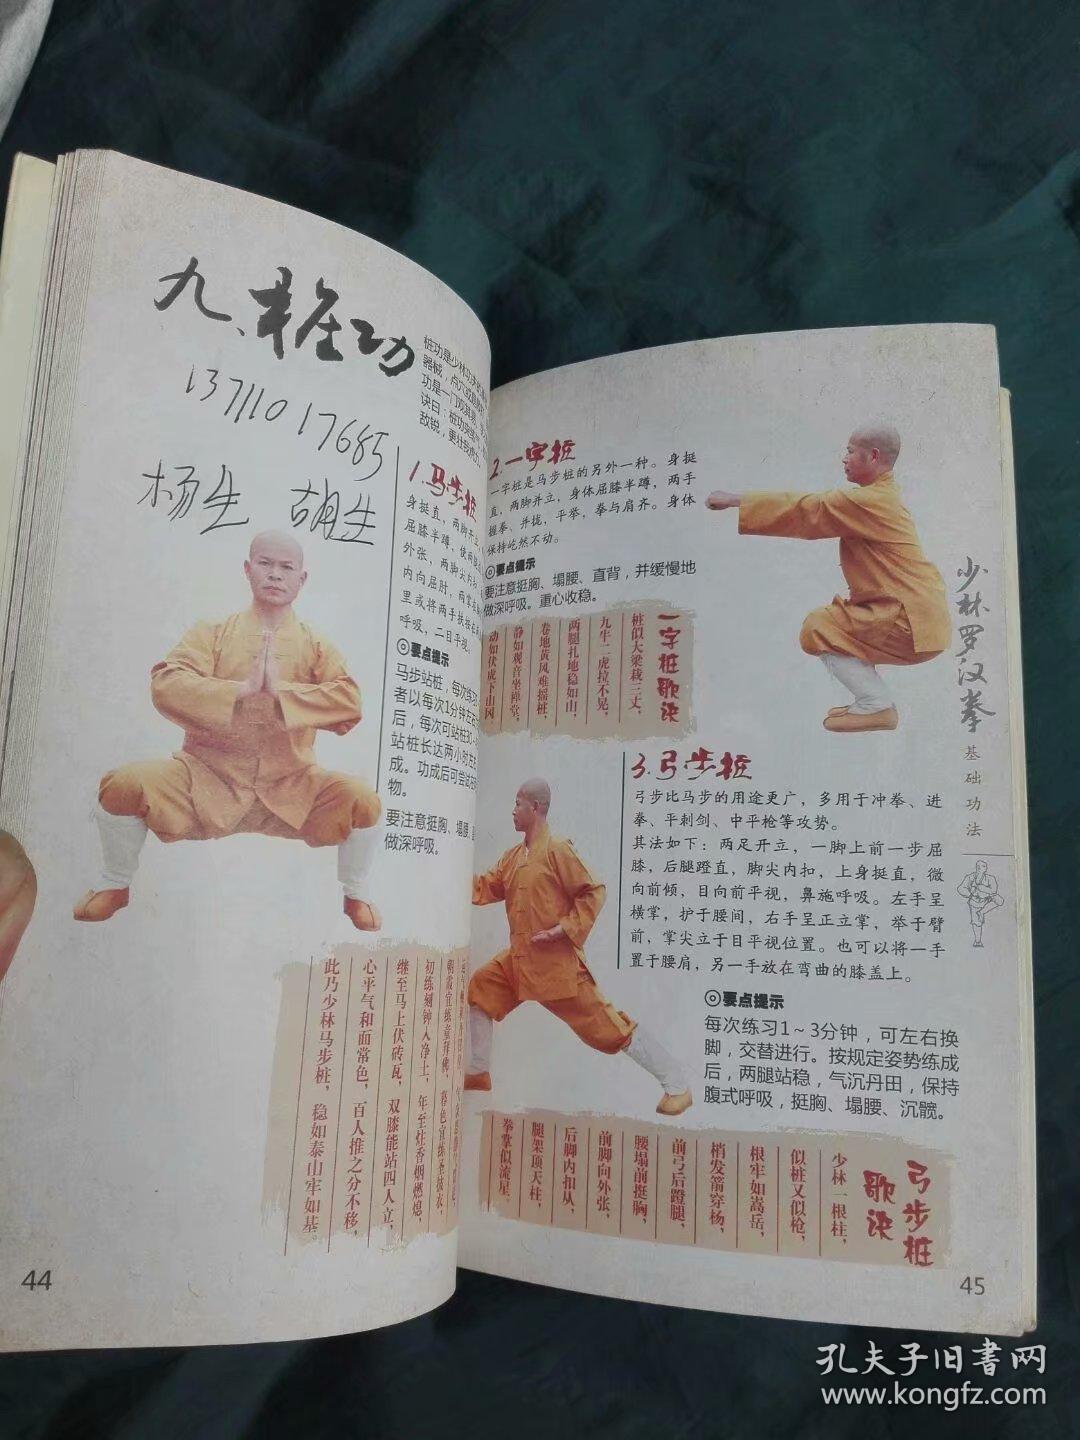 九、桩功
13711017685
杨生 胡生
桩功是少林功夫的
器械，点穴或
功是一门
诀曰：桩功
敌锐，更壮
1.马步桩
身挺直，两脚开立，
屈膝半蹲，使两
外张，两脚尖
内向屈肘，两掌
里或将两手扶按在
呼吸，二目平视。
◎要点提示
马步站桩，每次练习
者以每次1分钟左右
后，每次可站桩30
站桩长达两小时左右
成。功成后可尝试
物。
要注意挺胸、塌腰、
做深呼吸。
朝霞宜练童拜佛，暮色宜练圣披衣，
初练刻钟入净土，年至炷香烟燃熄，
继至马上伏砖瓦，双膝能站四人立，
心平气和面常色，百人推之分不移，
此乃少林马步桩，稳如泰山牢如基。
44
2.一字桩
一字桩是马步桩的另外一种。身挺
直，两脚并立，身体屈膝半蹲，两手
握拳、并拢，平举，拳与肩齐。身体
保持屹然不动。
◎要点提示
要注意挺胸、塌腰、直背，并缓慢地
做深呼吸。重心收稳。
一字桩歌诀
桩似大梁栽三丈，
九牛二虎拉不晃，
两腿扎地稳如山，
卷地黄风难摇桩，
静如观音坐禅堂，
动如伏虎下山冈。
3.弓步桩
弓步比马步的用途更广，多用于冲拳、进
拳、平刺剑、中平枪等攻势。
其法如下：两足开立，一脚上前一步屈
膝，后腿蹬直，脚尖内扣，上身挺直，微
向前倾，目向前平视，鼻施呼吸。左手呈
横掌，护于腰间，右手呈正立掌，举于臂
前，掌尖立于目平视位置。也可以将一手
置于腰肩，另一手放在弯曲的膝盖上。
◎要点提示
每次练习1～3分钟，可左右换
脚，交替进行。按规定姿势练成
后，两腿站稳，气沉丹田，保持
腹式呼吸，挺胸、塌腰、沉髋。
弓步桩
歌诀
少林一根柱，
似桩又似枪，
根牢如嵩岳，
梢发箭穿杨，
前弓后蹬腿，
腰塌前挺胸，
前脚向外张，
后脚内扣从，
腿架顶天柱，
拳掌似流星。
少林罗汉拳
基础功法
45
孔夫子旧書网
www.kongfz.com